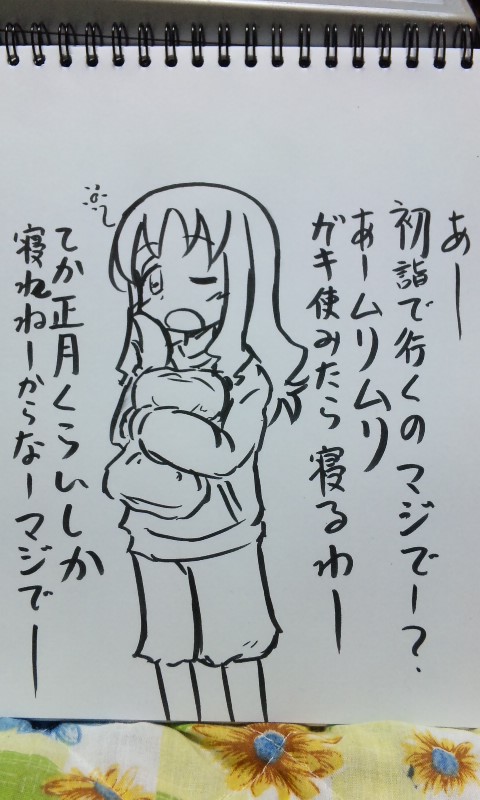 あー
初詣で行くのマジでー?
あームリムリ
ガキ使みたら寝るわー
てか正月くらいしか
寝れねーからなーマジでー